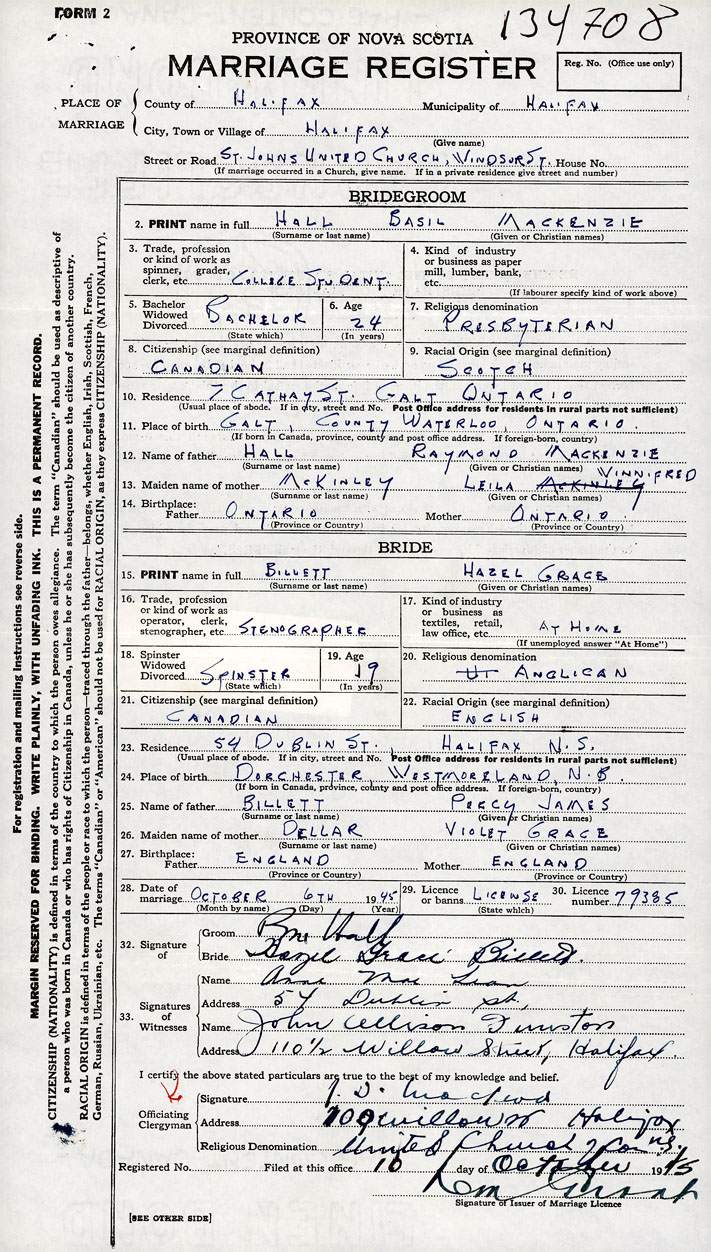 FORM 2
134708
PROVINCE OF NOVA SCOTIA
MARRIAGE REGISTER
Reg. No. (Office use only)
PLACE OF MARRIAGE
County of HALIFAX Municipality of HALIFAX
City, Town or Village of HALIFAX
(Give name)
Street or Road ST. JOHNS UNITED CHURCH, WINDSOR ST. House No.
(If marriage occurred in a Church, give name. If in a private residence give street and number)
BRIDEGROOM
2. PRINT name in full HALL BASIL MACKENZIE
(Surname or last name) (Given or Christian names)
3. Trade, profession or kind of work as spinner, grader, clerk, etc. COLLEGE STUDENT.
4. Kind of industry or business as paper mill, lumber, bank, etc.
(If labourer specify kind of work above)
5. Bachelor Widowed Divorced BACHELOR
(State which)
6. Age 24
(In years)
7. Religious denomination
PRESBYTERIAN
8. Citizenship (see marginal definition)
CANADIAN
9. Racial Origin (see marginal definition)
SCOTCH
10. Residence 7 CATHAY ST. GALT ONTARIO
(Usual place of abode. If in city, street and No. Post Office address for residents in rural parts not sufficient)
11. Place of birth GALT, COUNTY WATERLOO, ONTARIO.
(If born in Canada, province, county and post office address. If foreign-born, country)
12. Name of father HALL RAYMOND MACKENZIE
(Surname or last name) (Given or Christian names)
13. Maiden name of mother MCKINLEY LEILA MCKINLEY WINNIFRED
(Surname or last name) (Given or Christian names)
14. Birthplace: Father ONTARIO Mother ONTARIO
(Province or Country) (Province or Country)
BRIDE
15. PRINT name in full BILLETT HAZEL GRACE
(Surname or last name) (Given or Christian names)
16. Trade, profession or kind of work as operator, clerk, stenographer, etc. STENOGRAPHER
17. Kind of industry or business as textiles, retail, law office, etc. AT HOME
(If unemployed answer "At Home")
18. Spinster Widowed Divorced SPINSTER
(State which)
19. Age 19
(In years)
20. Religious denomination
ANGLICAN
21. Citizenship (see marginal definition)
CANADIAN
22. Racial Origin (see marginal definition)
ENGLISH
23. Residence 54 DUBLIN ST. HALIFAX N.S.
(Usual place of abode. If in city, street and No. Post Office address for residents in rural parts not sufficient)
24. Place of birth DORCHESTER, WESTMORELAND, N.B.
(If born in Canada, province, county and post office address. If foreign-born, country)
25. Name of father BILLETT PERCY JAMES
(Surname or last name) (Given or Christian names)
26. Maiden name of mother DELLAR VIOLET GRACE
(Surname or last name) (Given or Christian names)
27. Birthplace: Father ENGLAND Mother ENGLAND
(Province or Country) (Province or Country)
28. Date of marriage OCTOBER 6TH 1945
(Month by name) (Day) (Year)
29. Licence or banns LICENSE
(State which)
30. Licence number 79385
32. Signature of
Groom BM Hall
Bride Hazel Grace Billett.
33. Signatures of Witnesses
Name Anne MacLean
Address 54 Dublin St.
Name John Allison Funston
Address 110½ Willow Street, Halifax.
I certify the above stated particulars are true to the best of my knowledge and belief.
Officiating Clergyman
Signature J. D. MacLeod
Address 100 Willow St Halifax
Religious Denomination United Church of Can N.S.
Registered No. Filed at this office 10 day of October 1945
Signature of Issuer of Marriage Licence
[SEE OTHER SIDE]
For registration and mailing instructions see reverse side.
MARGIN RESERVED FOR BINDING. WRITE PLAINLY, WITH UNFADING INK. THIS IS A PERMANENT RECORD.
CITIZENSHIP (NATIONALITY) is defined in terms of the country to which the person owes allegiance. The term "Canadian" should be used as descriptive of
a person who was born in Canada or who has rights of Citizenship in Canada, unless he or she has subsequently become the citizen of another country.
RACIAL ORIGIN is defined in terms of the people or race to which the person—traced through the father—belongs, whether English, Irish, Scottish, French,
German, Russian, Ukrainian, etc. The terms "Canadian" or "American" should not be used for RACIAL ORIGIN, as they express CITIZENSHIP (NATIONALITY).